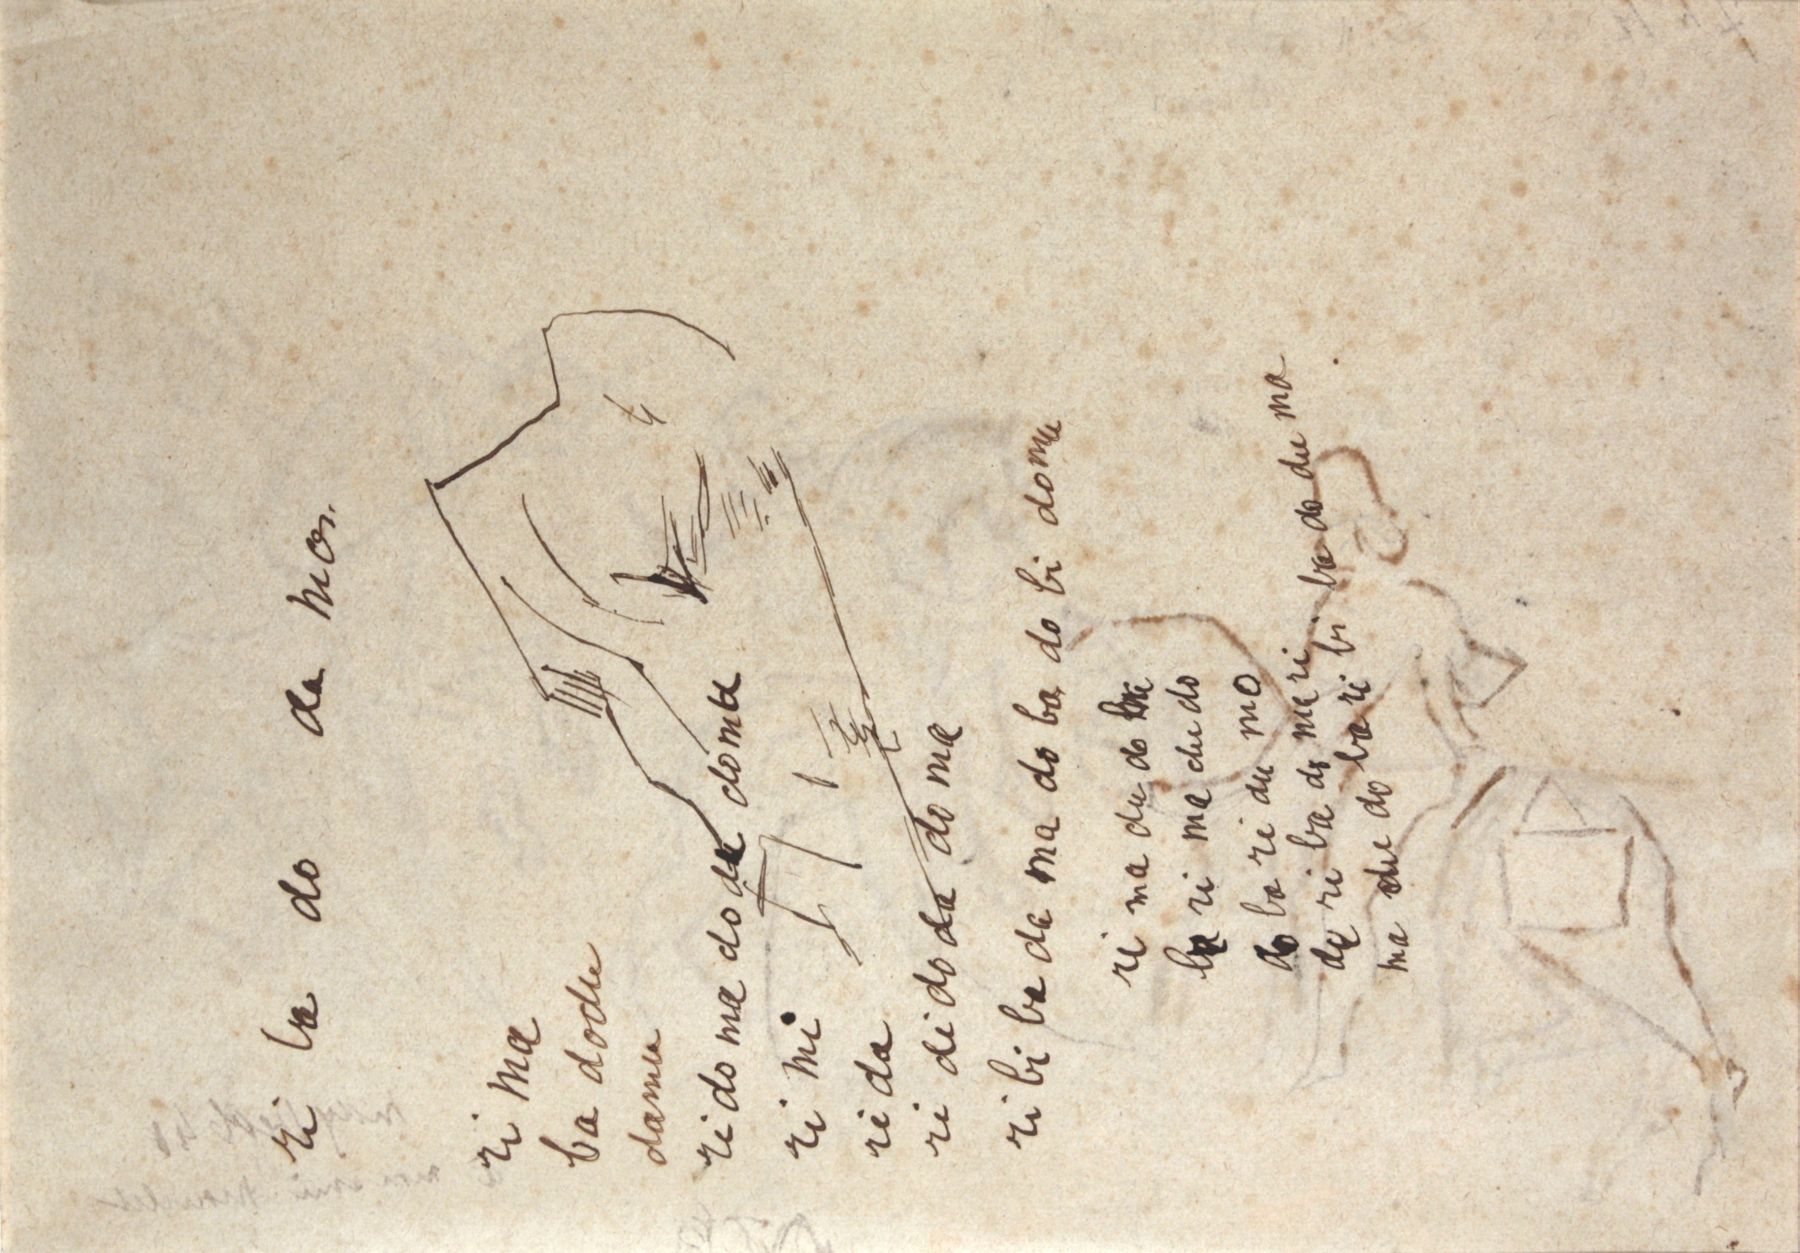 ri ba do da mon.
ri ma
ba dodu
dama
ri do ma do da doma
ri mi
ri da
ri di do da do ma
ri bi ba da ma do ba do bi doma
ri ma du do
ba ri ma du do
do ba ri du mo
da ri ba do ma ri
ma du do ba ri bi ba do du ma